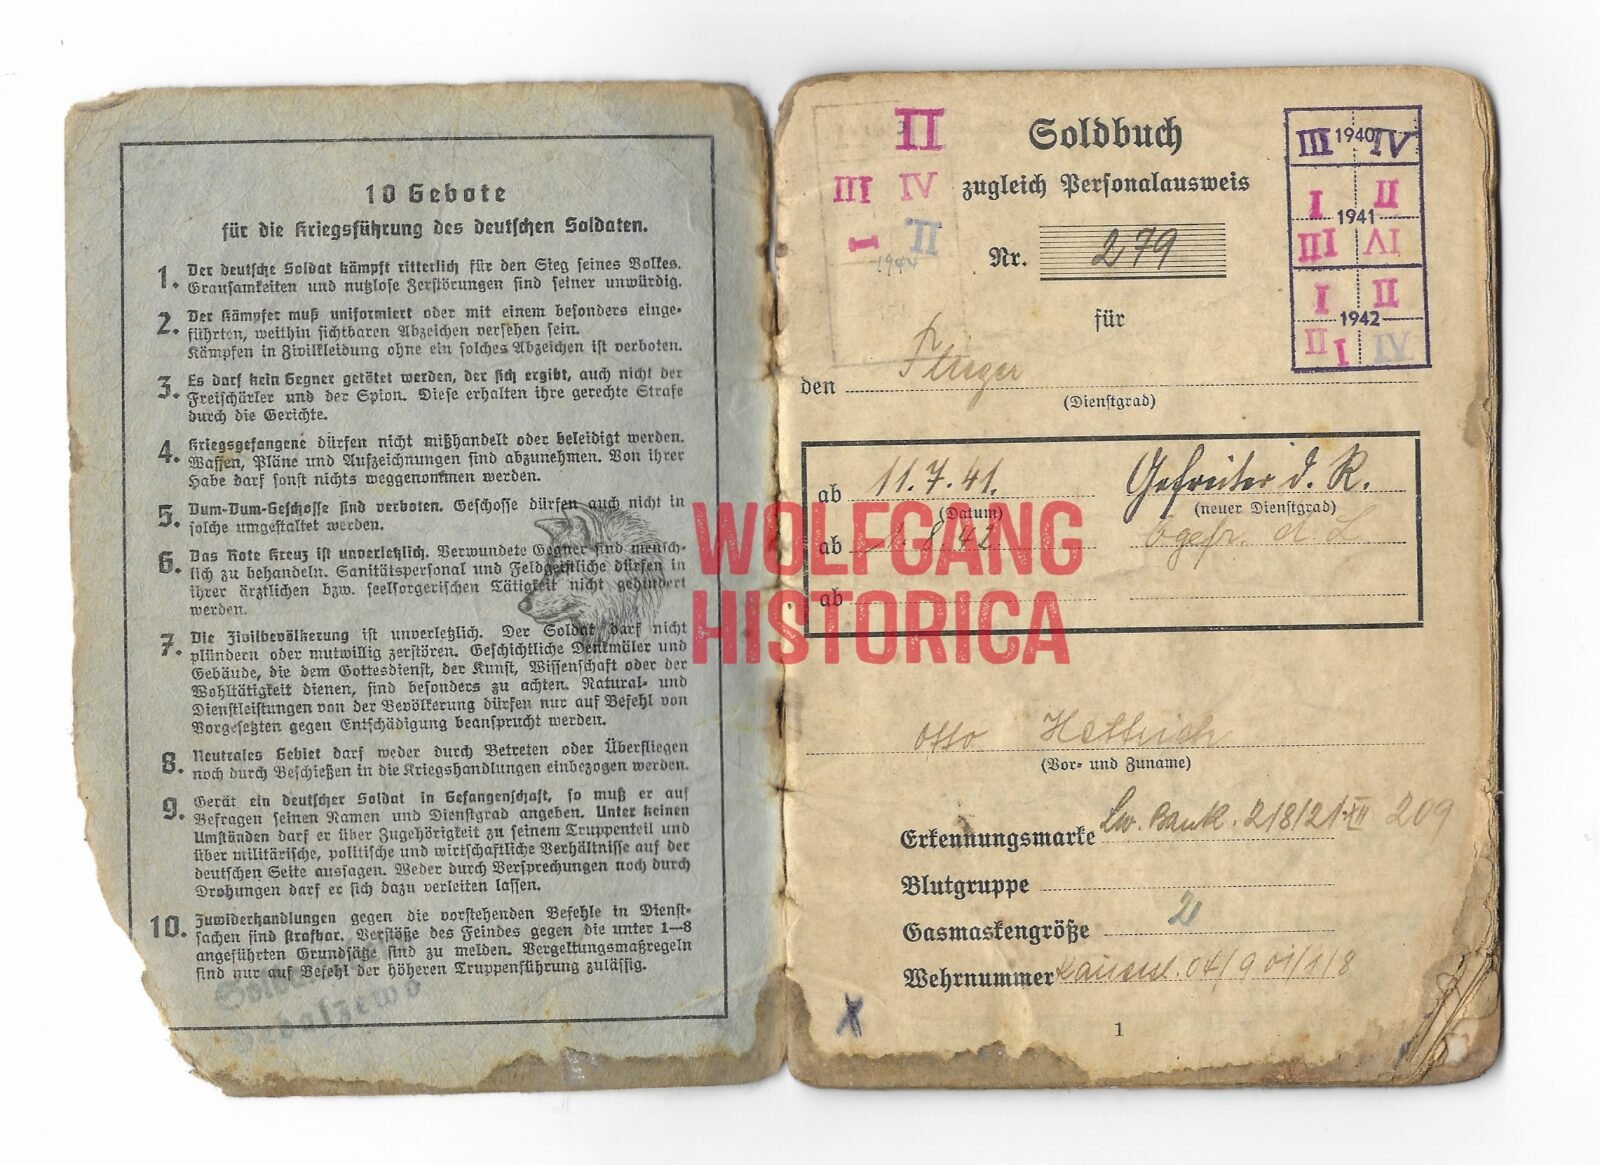 10 Gebote
für die Kriegsführung des deutschen Soldaten.
1. Der deutsche Soldat kämpft ritterlich für den Sieg seines Volkes.
Grausamkeiten und nutzlose Zerstörungen sind seiner unwürdig.
2. Der Kämpfer muß uniformiert oder mit einem besonders einge-
führten, weithin sichtbaren Abzeichen versehen sein.
Kämpfen in Zivilkleidung ohne ein solches Abzeichen ist verboten.
3. Es darf kein Gegner getötet werden, der sich ergibt, auch nicht der
Freischärler und der Spion. Diese erhalten ihre gerechte Strafe
durch die Gerichte.
4. Kriegsgefangene dürfen nicht mißhandelt oder beleidigt werden.
Waffen, Pläne und Aufzeichnungen sind abzunehmen. Von ihrer
Habe darf sonst nichts weggenommen werden.
5. Dum-Dum-Geschosse sind verboten. Geschosse dürfen auch nicht in
solche umgestaltet werden.
6. Das Rote Kreuz ist unverletzlich. Verwundete Gegner sind mensch-
lich zu behandeln. Sanitätspersonal und Feldgeistliche dürfen in
ihrer ärztlichen bzw. seelsorgerischen Tätigkeit nicht gehindert
werden.
7. Die Zivilbevölkerung ist unverletzlich. Der Soldat darf nicht
plündern oder mutwillig zerstören. Geschichtliche Denkmäler und
Gebäude, die dem Gottesdienst, der Kunst, Wissenschaft oder der
Wohltätigkeit dienen, sind besonders zu achten. Natural- und
Dienstleistungen von der Bevölkerung dürfen nur auf Befehl von
Vorgesetzten gegen Entschädigung beansprucht werden.
8. Neutrales Gebiet darf weder durch Betreten oder Überfliegen
noch durch Beschießen in die Kriegshandlungen einbezogen werden.
9. Gerät ein deutscher Soldat in Gefangenschaft, so muß er auf
Befragen seinen Namen und Dienstgrad angeben. Unter keinen
Umständen darf er über Zugehörigkeit zu seinem Truppenteil und
über militärische, politische und wirtschaftliche Verhältnisse auf der
deutschen Seite aussagen. Weder durch Versprechungen noch durch
Drohungen darf er sich dazu verleiten lassen.
10. Zuwiderhandlungen gegen die vorstehenden Befehle in Dienst-
sachen sind strafbar. Verstöße des Feindes gegen die unter 1—8
angeführten Grundsätze sind zu melden. Vergeltungsmaßregeln
sind nur auf Befehl der höheren Truppenführung zulässig.
WOLFGANG
HISTORICA
II
III IV
I II
1944
Soldbuch
zugleich Personalausweis
Nr. 279
für
den Flieger
(Dienstgrad)
III 1940 IV
I II
1941
III IV
I II
1942
III IV
ab 11.7.41. Gefreiter d. R.
(Datum) (neuer Dienstgrad)
ab 1.8.42 Ogefr. d L
ab
Otto Hettrich
(Vor- und Zuname)
Erkennungsmarke 209
Blutgruppe
Gasmaskengröße 2
Wehrnummer
1